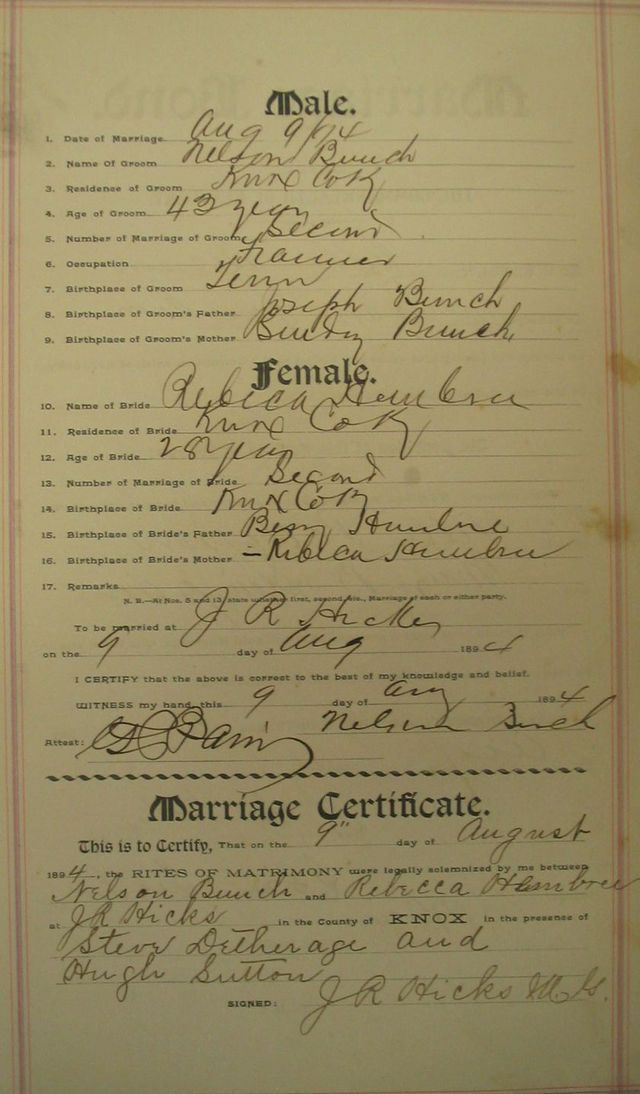 Male.
1. Date of Marriage Aug 9/94
2. Name Of Groom Nelson Bunch
3. Residence of Groom Knox Co Ky
4. Age of Groom 43 years
5. Number of Marriage of Groom Second
6. Occupation Farmer
7. Birthplace of Groom Tenn
8. Birthplace of Groom's Father Joseph Bunch
9. Birthplace of Groom's Mother Bunch
Female.
10. Name of Bride Rebeca Hembree
11. Residence of Bride Knox Co Ky
12. Age of Bride 28 years
13. Number of Marriage of Bride Second
14. Birthplace of Bride Knox Co Ky
15. Birthplace of Bride's Father
16. Birthplace of Bride's Mother – Rebeca
17. Remarks
N. B.—At Nos. 5 and 13, state whether first, second, etc., Marriage of each or either party.
To be married at J R Hicks
on the 9 day of Aug 1894
I CERTIFY that the above is correct to the best of my knowledge and belief.
WITNESS my hand, this 9 day of Aug 1894
Nelson Bunch
Attest:
Marriage Certificate.
This is to Certify, That on the 9" day of August
1894, the RITES OF MATRIMONY were legally solemnized by me between
Nelson Bunch and Rebecca Hembree
at J R Hicks in the County of KNOX in the presence of
Steve Detherage and
Hugh Sutton
SIGNED: J R Hicks M. G.